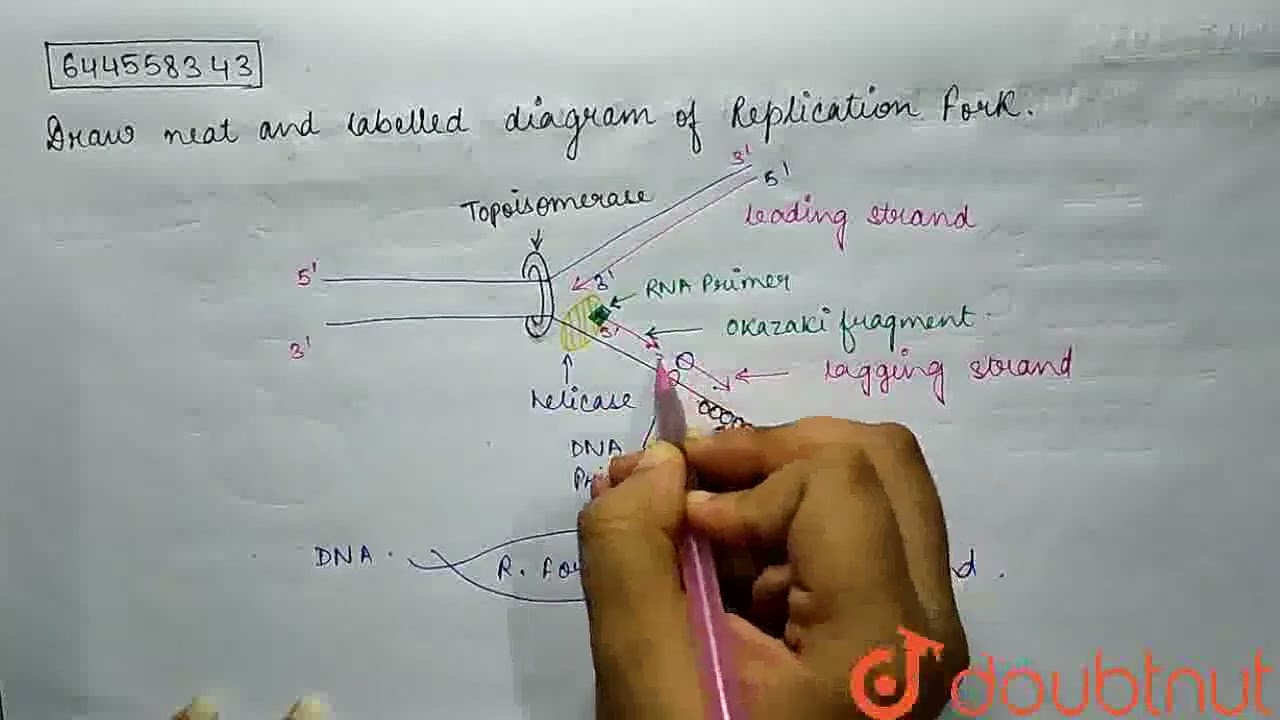 644558343
Draw neat and labelled diagram of Replication Fork.
3'
5'
Topoisomerase
leading strand
5'
3'
RNA Primer
Okazaki fragment
5'
3'
lagging strand
helicase
DNA
DNA
R. For
d.
doubtnut